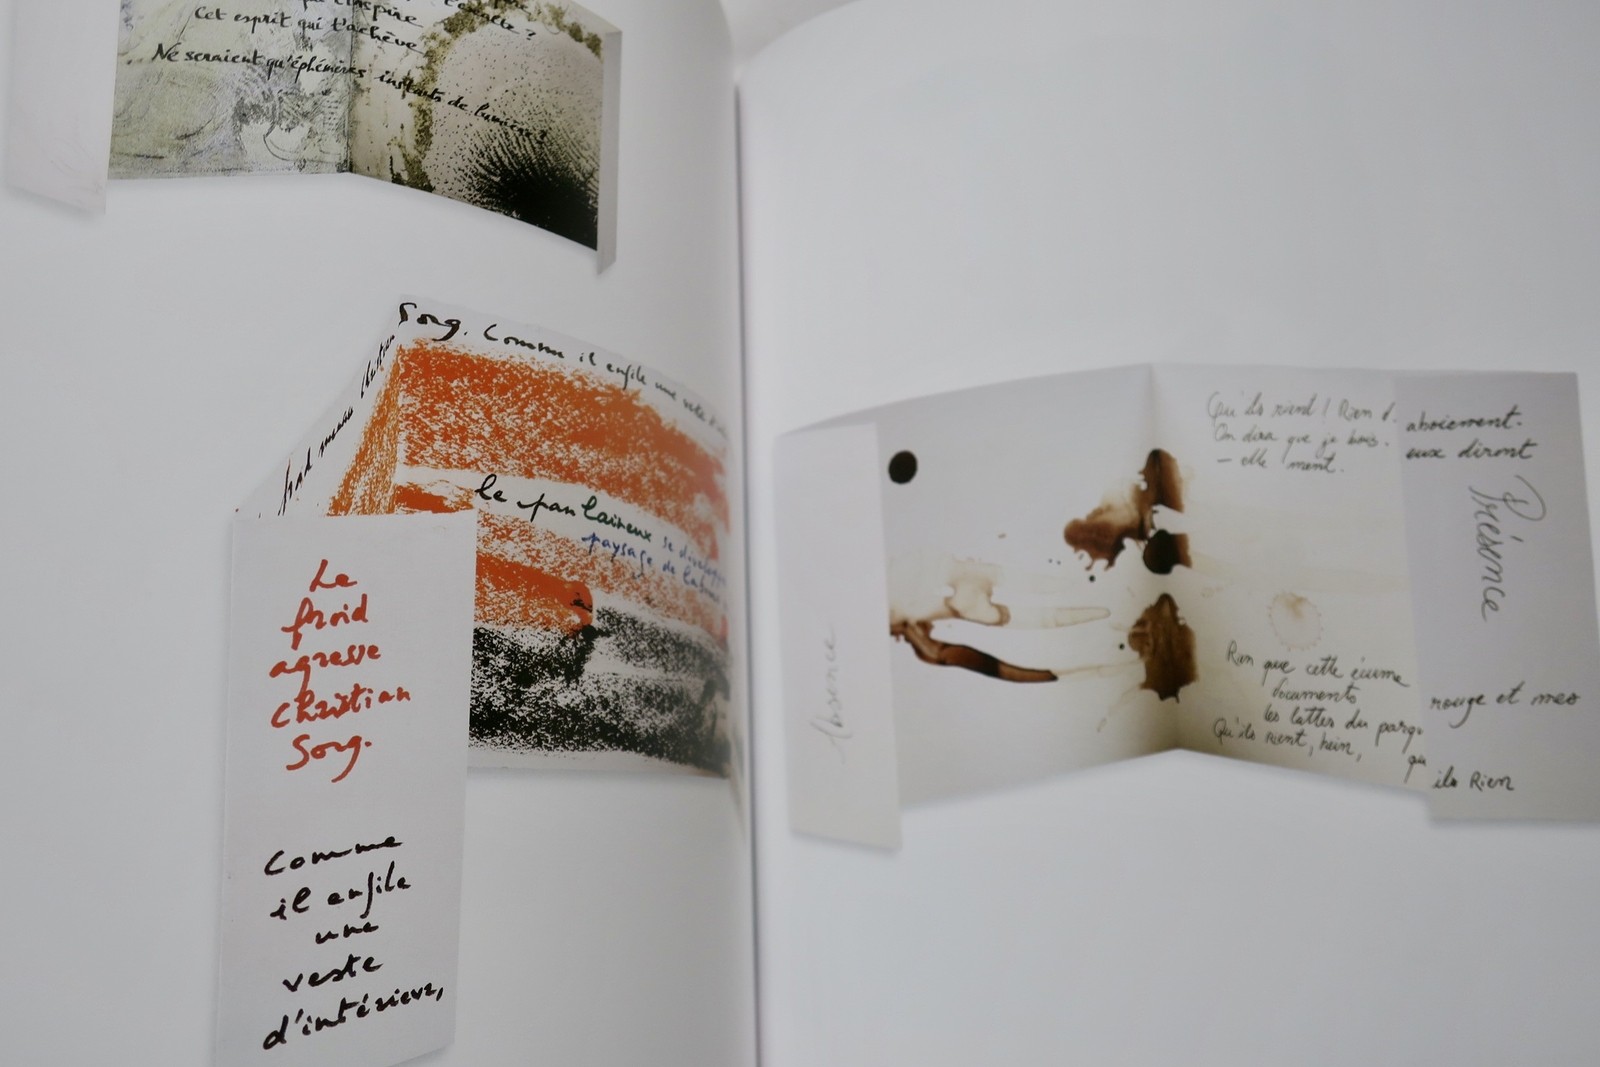 l'inspire
l'exalte ?
Cet esprit qui t'achève
Ne seraient qu'éphémères instants de lumière ?
froid Christian
Sorg. Comme il enfile une veste
le pan laineux se
paysage de
Le
froid
agresse
Christian
Sorg.
Comme
il enfile
une
veste
d'intérieur,
Absence
Qu'ils rient ! Rien
aboiement.
On dira que je bois.
eux diront
— elle ment.
Présence
Rien que cette écume
documents
rouge et mes
les lattes du parqu
Qu'ils rient, hein, qu
ils Rien